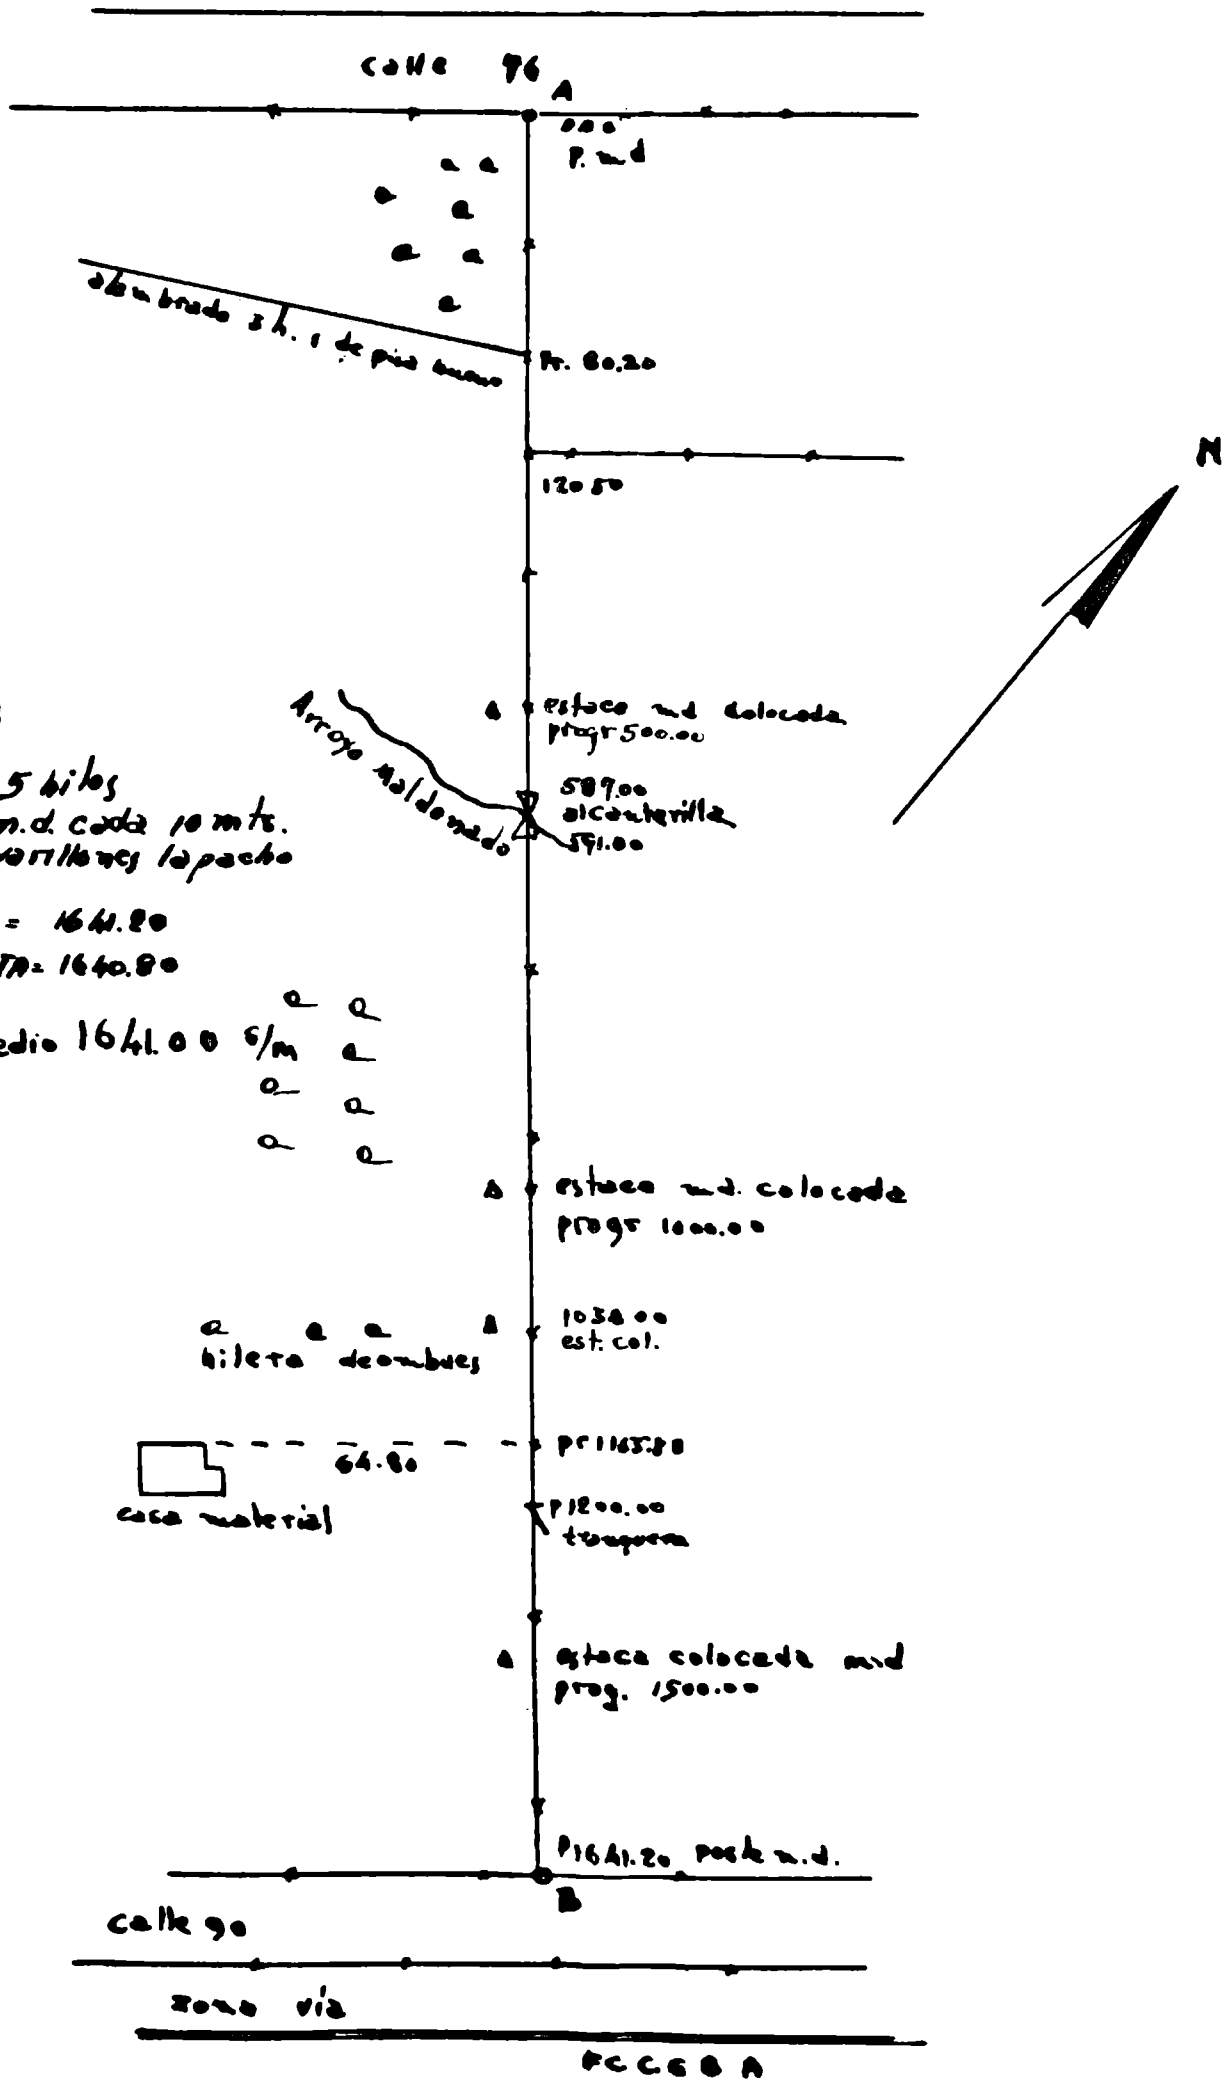 calle 96
A
000
P. m d
alambrado 3 h. 1 de pua bueno
Pr. 80.20
120 50
N
estaca md colocada
progr 500.00
Arroyo Maldonado
587.00
alcantarilla
591.00
5 hilos
n.d. cada 10 mts.
varillones lapacho
= 1641.20
TA= 1640.80
edio 1641.00 s/m
estaca md. colocada
progr 1000.00
1038 00
est. col.
hilera de ombues
pr 1165.80
64.80
casa material
P 1200.00
tranquera
estaca colocada m.d
prog. 1500.00
P 1641.20 poste n.d.
B
calle 90
zona vía
F C C G B A